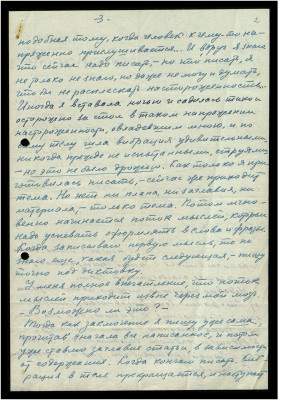 -3-
2
подобная тому, когда человек к чему-то на-
пряженно прислушивается... И вдруг я знаю
что сейчас надо писать, - но что писать, я
не только не знаю, но даже не могу и думать,
что бы не расплескать настороженность...
Иногда я вставала ночью и садилась тихо и
осторожно за стол в таком напряжении
настороженности, овладевшем мною, и по
всему телу шла вибрация удивительная,
никогда прежде не испытанная,
- но это не было дрожью. Как только я при-
готовилась писать, - сейчас же приходит
тема. Но нет ни плана, ни заглавия, ни
материала, - только тема. Потом мгно-
венно начинается поток мыслей, которые
надо успевать оформлять в слова и фразы.
Когда записываю первую мысль, то не
знаю еще, какая будет следующая, - пишу
точно под диктовку.
У меня полное впечатление, что поток
мыслей приходит извне через мой мозг.
- Возможно ли это? -
Тогда как заключение я пишу уже сама,
прочитав сначала все написанное, и потом
уже ставлю заглавие статьи, в зависимости
от содержания. Когда кончаю писать, виб-
рация в теле прекращается, и наступает